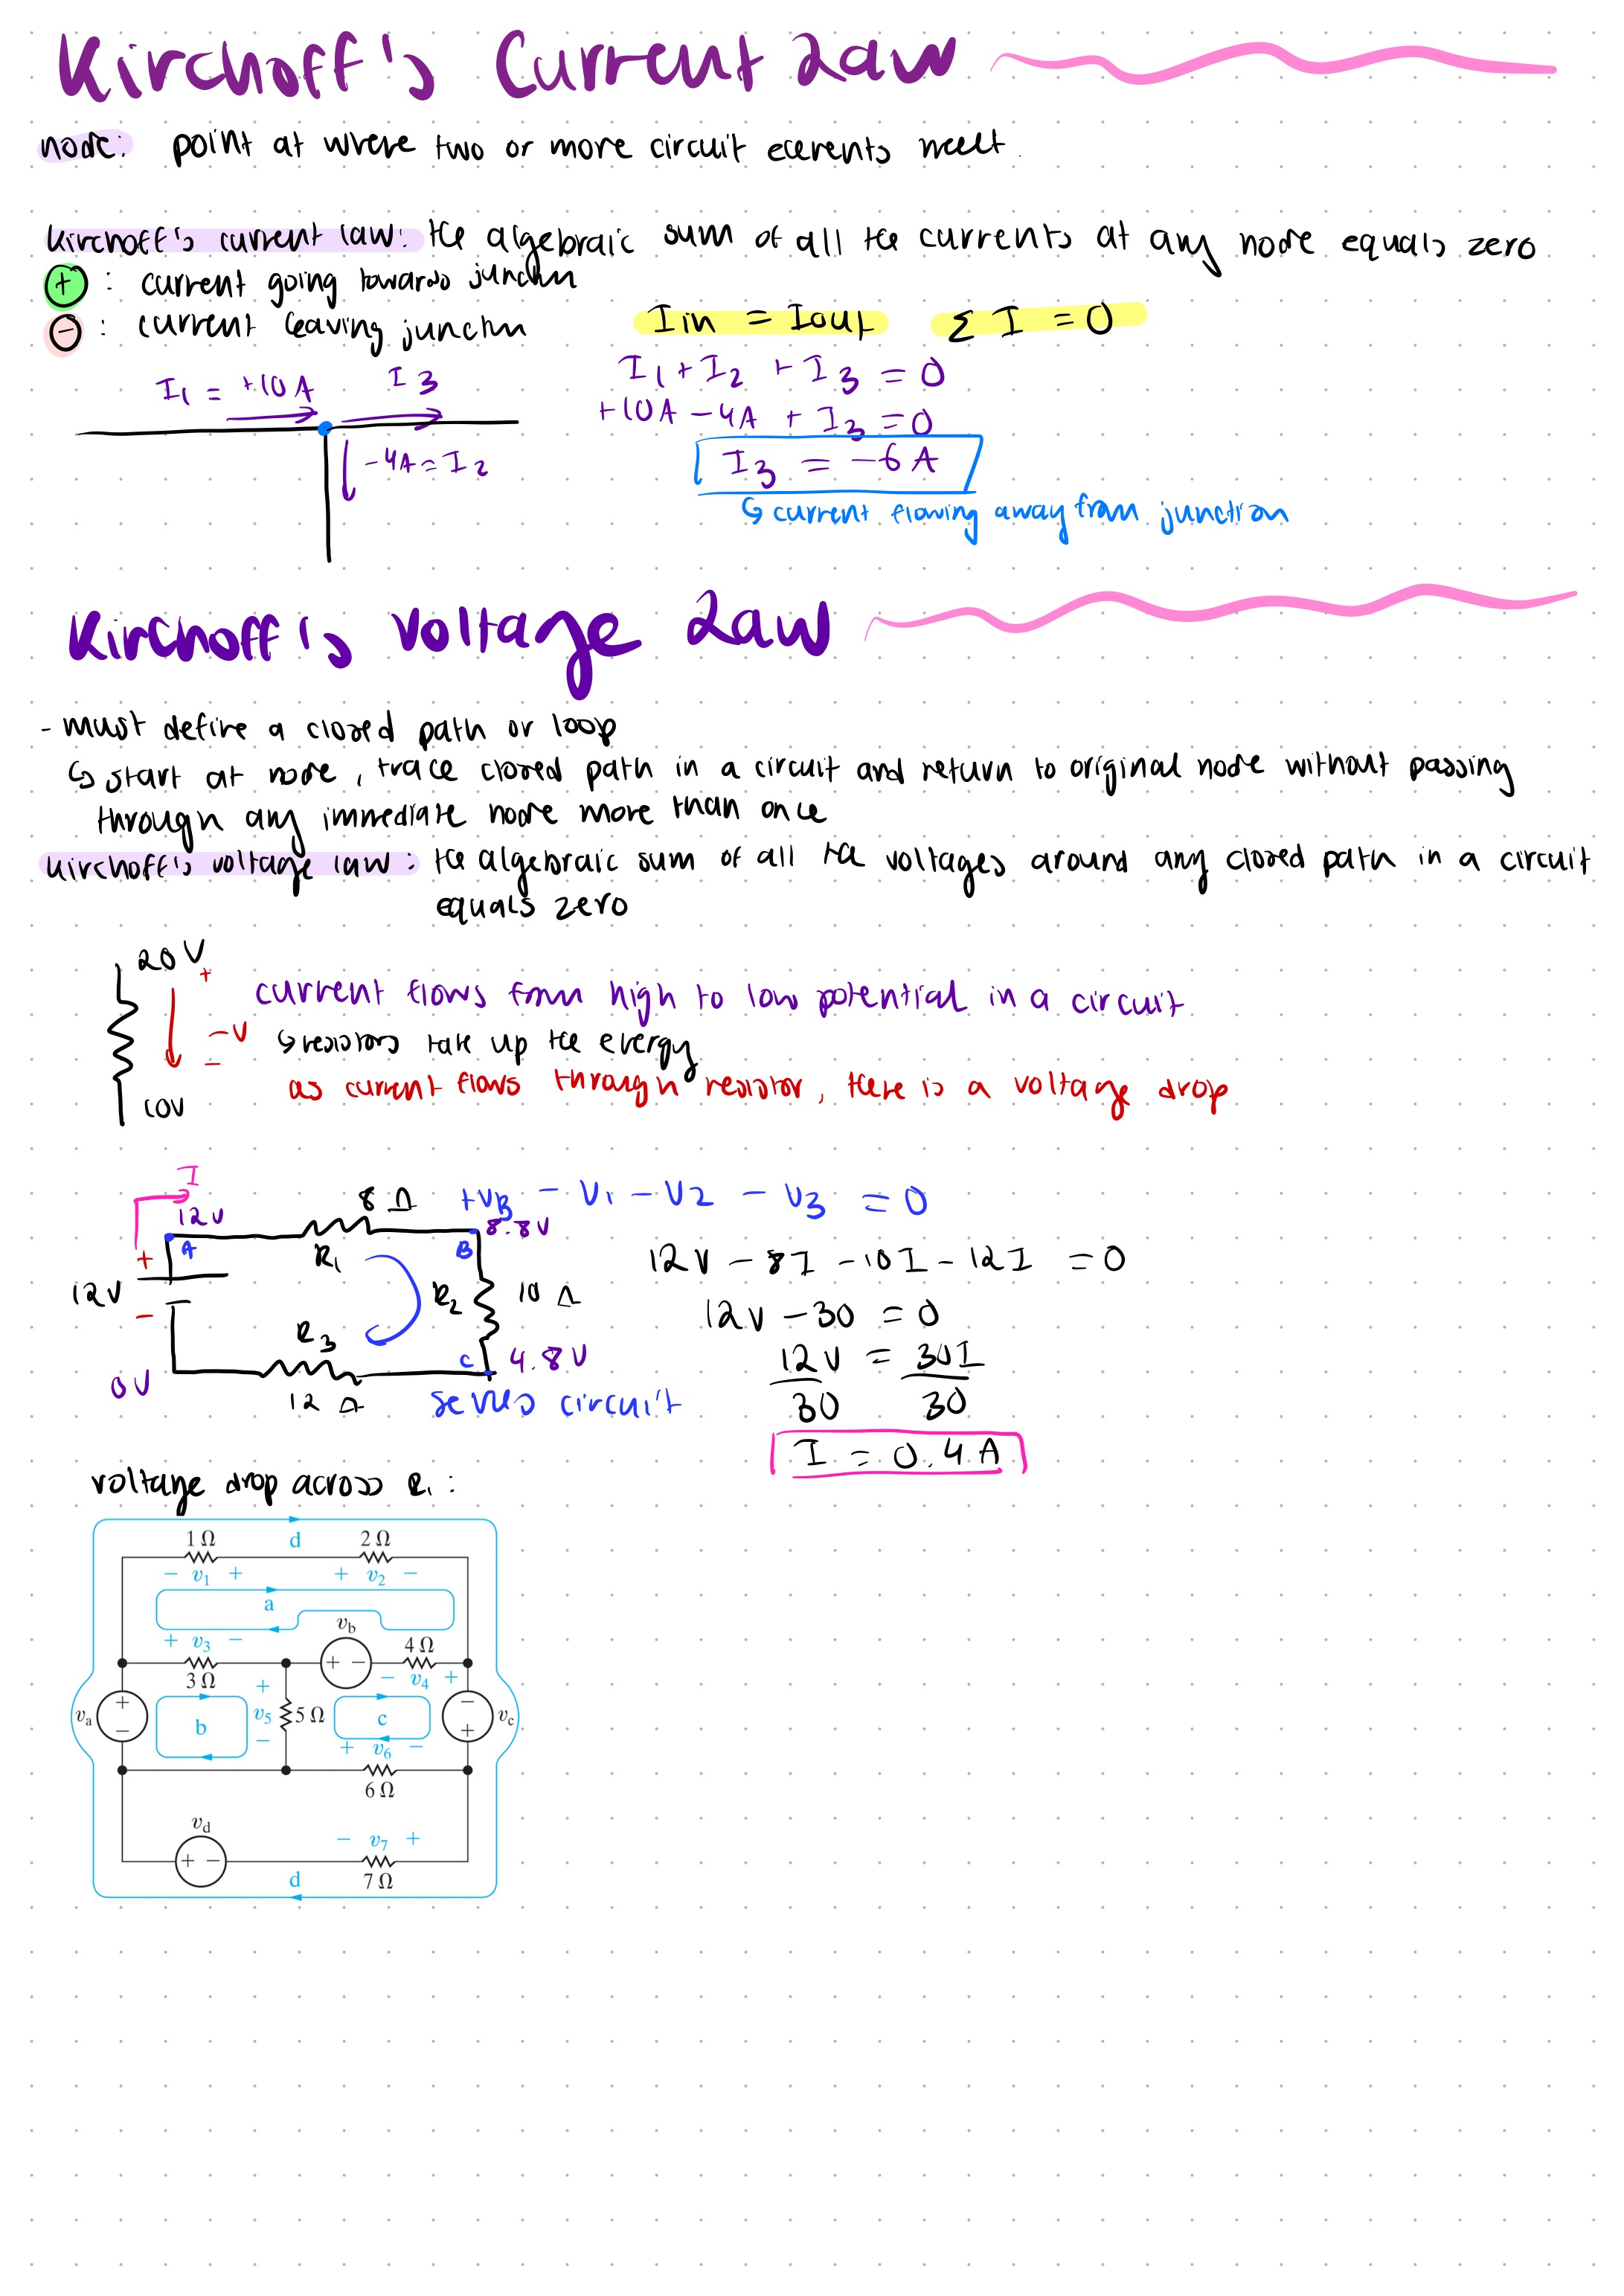 Kirchoff's Current Law
node: point at where two or more circuit elements meet.
Kirchoff's current law: the algebraic sum of all the currents at any node equals zero
+ : current going towards junctn
- : current leaving junctn
Iin = Iout Σ I = 0
I1 = +10 A I3
I1 + I2 + I3 = 0
+10A - 4A + I3 = 0
-4A = I2
I3 = -6 A
↳ current flowing away from junction
Kirchoff's Voltage Law
- must define a closed path or loop
↳ start at node, trace closed path in a circuit and return to original node without passing
through any immediate node more than once
Kirchoff's voltage law: the algebraic sum of all the voltages around any closed path in a circuit
equals zero
20 V
+
-V
-
10V
current flows from high to low potential in a circuit
↳ resistors take up the energy
as current flows through resistor, there is a voltage drop
I
12V
8 Ω
+VB - V1 - V2 - V3 = 0
8.8V
+
A
R1
B
12V - 8I - 10I - 12I = 0
12V
R2
10 Ω
-
12V - 30 = 0
R3
C
4.8V
12V = 30I
0V
12 Ω
series circuit
30 30
I = 0.4 A
voltage drop across R1:
1 Ω d 2 Ω
− v1 + + v2 −
a
vb
+ v3 − 4 Ω
+ −
3 Ω − v4 +
+ + −
va b v5 5 Ω c vc
− − +
+ v6 −
6 Ω
vd
− v7 +
+ −
7 Ω
d